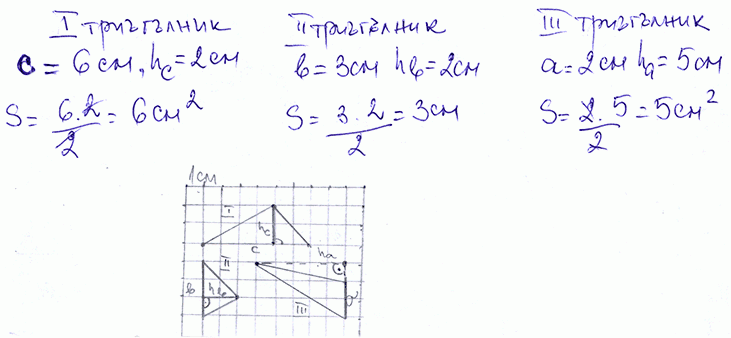 I триъгълник
c = 6 см, hc = 2 см
S = 6.2/2 = 6 см²
II триъгълник
b = 3 см hb = 2 см
S = 3.2/2 = 3 см
III триъгълник
a = 2 см ha = 5 см
S = 2.5/2 = 5 см²
1 см
I
hc
c
ha
II
b
hb
III
a